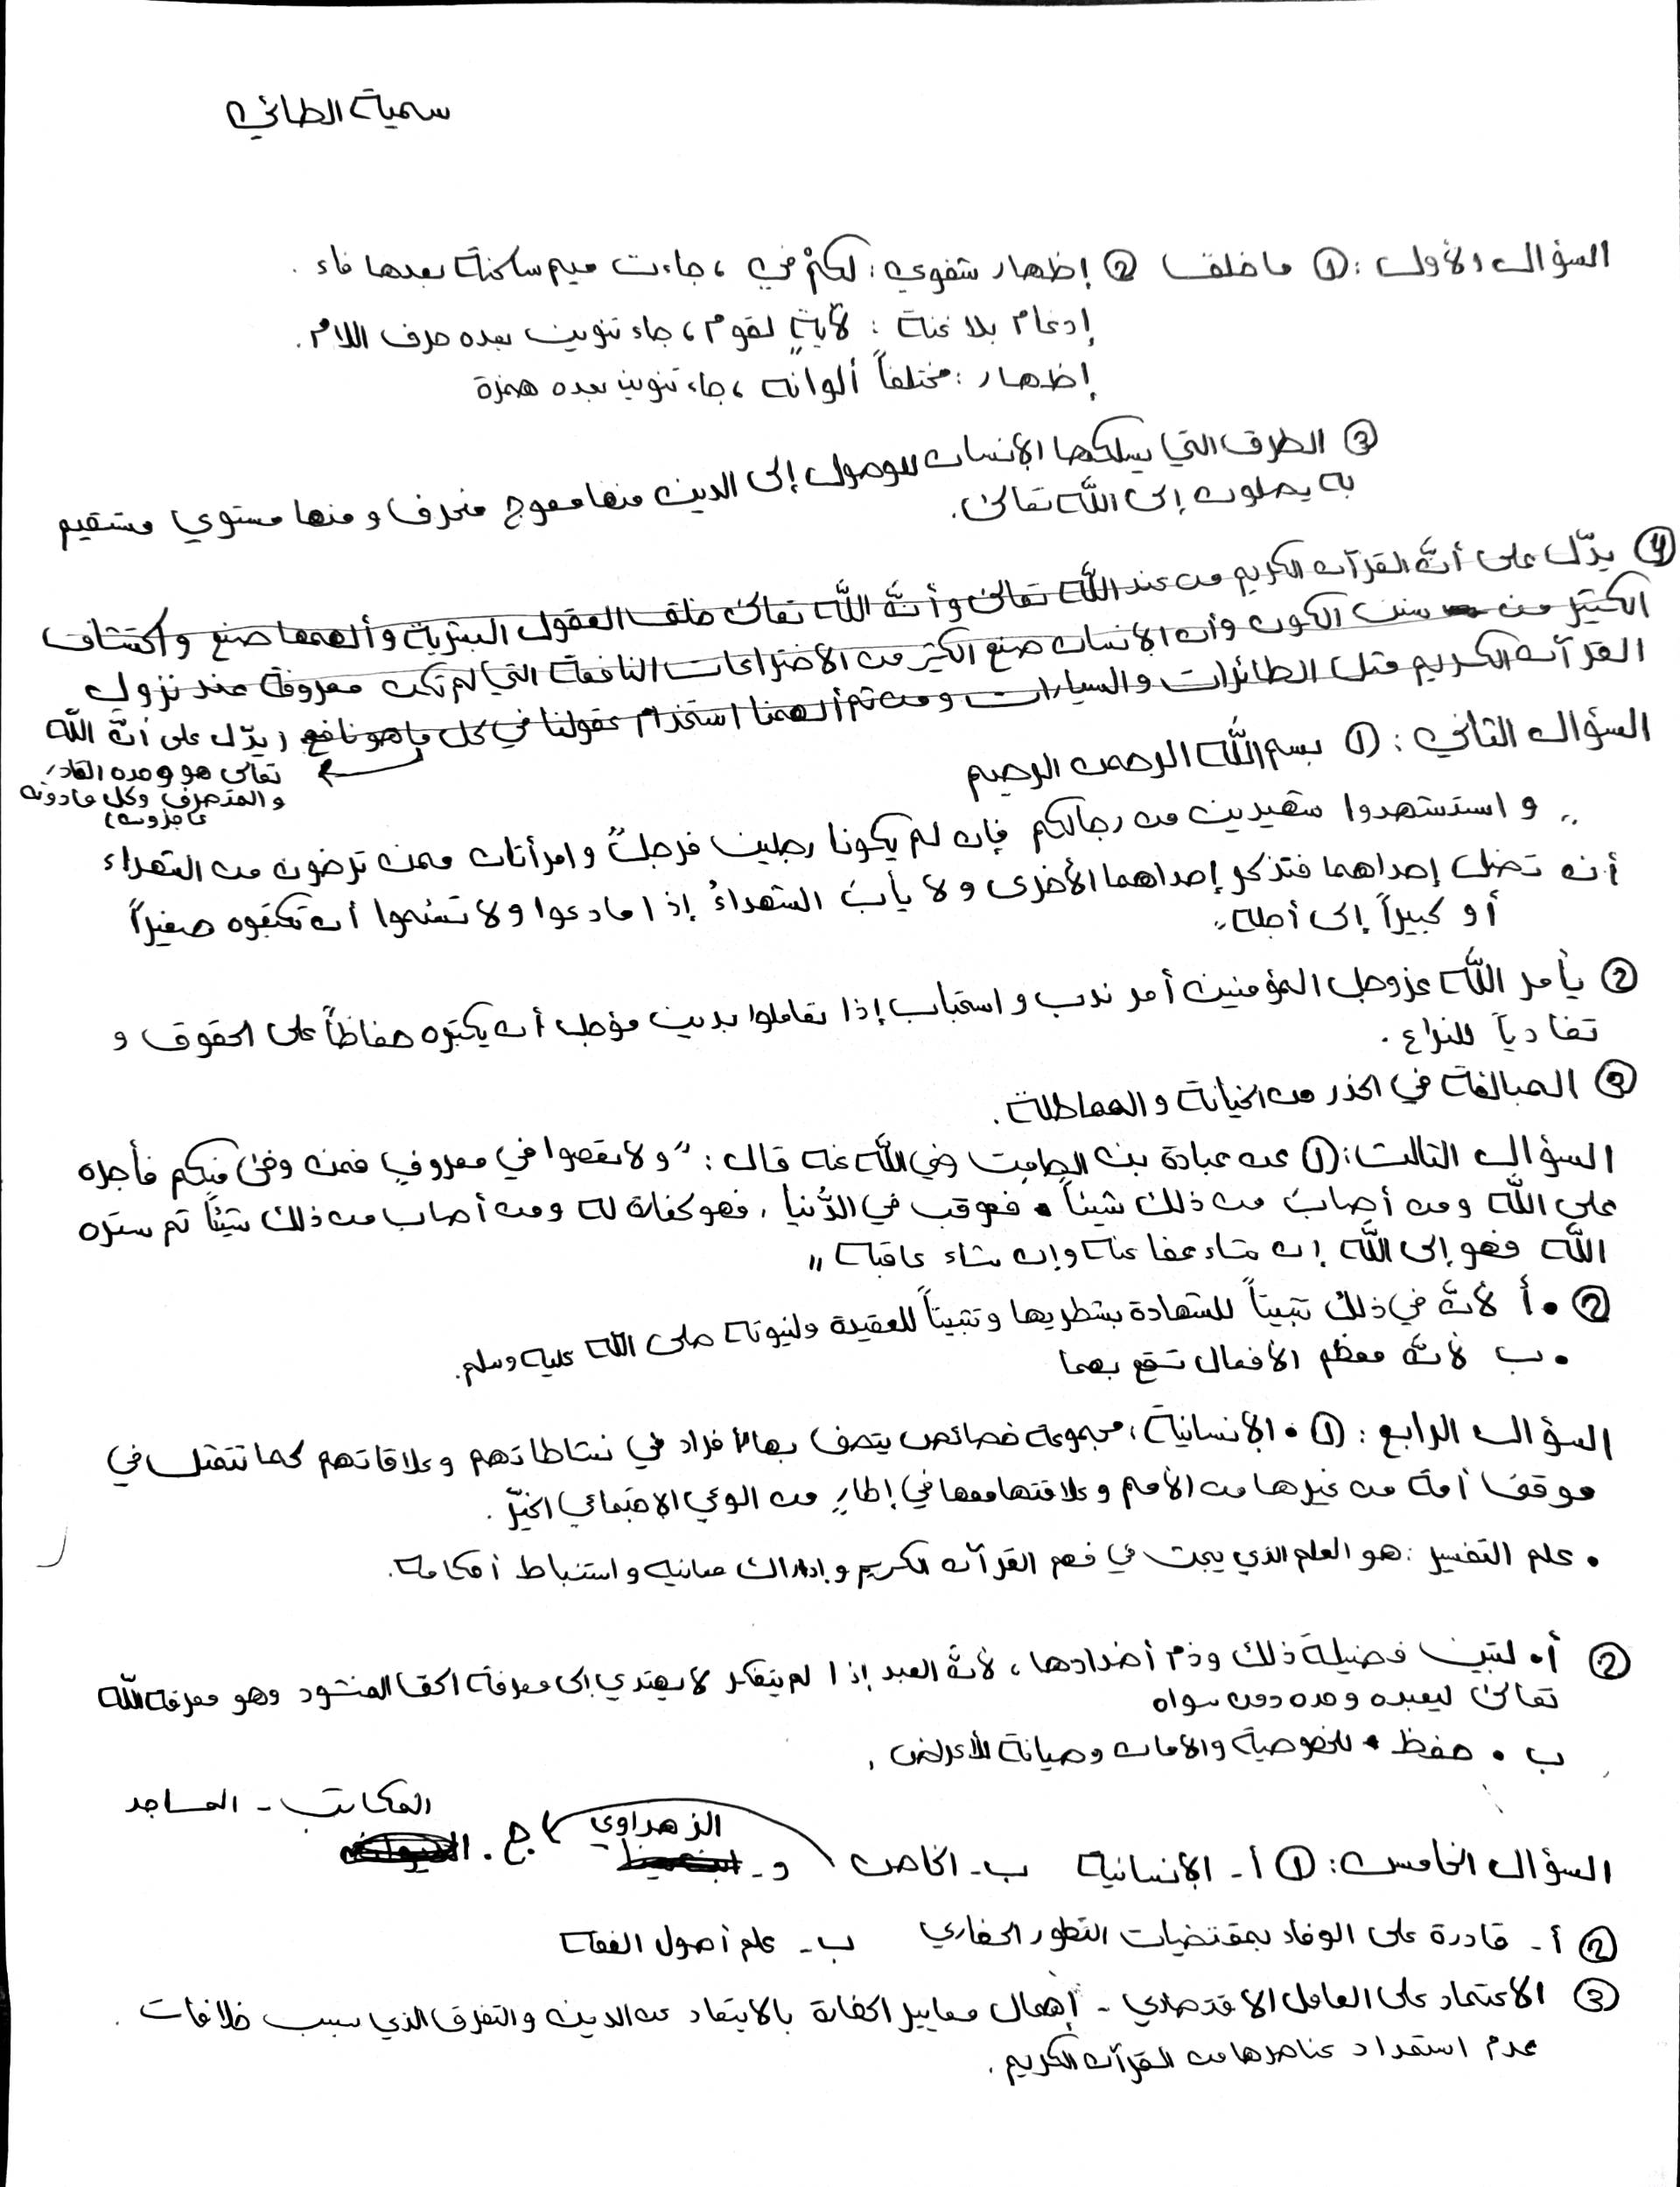 سمية الطائي
السؤال الأول: ① ما خلق ② إظهار شفوي: لكمْ في ، جاءت ميم ساكنة بعدها فاء .
إدغام بلا غنة : لآيةً لقوم ، جاء تنوين بعده حرف اللام .
إظهار : مختلفاً ألوانه ، جاء تنوين بعده همزة
③ الطرق التي يسلكها الإنسان للوصول إلى الدين منها معوج منحرف ومنها مستوي مستقيم
به يصلون إلى الله تعالى .
④ يدّل على أنَّ القرآن الكريم من عند الله تعالى وأنَّ الله تعالى خلق العقول البشرية وألهمها صنع واكتشاف
الكثير من سنن الكون وأن الإنسان صنع الكثير من الاختراعات النافعة التي لم تكن معروفة عند نزول
القرآن الكريم مثل الطائرات والسيارات ومن ثم ألهمنا استخدام عقولنا في كل ما هو نافع ( يدّل على أنَّ الله
تعالى هو وحده القادر
والمتصرف وكل ما دونه
عاجزون )
السؤال الثاني : ① بسم الله الرحمن الرحيم
" واستشهدوا شهيدين من رجالكم فإن لم يكونا رجلين فرجلٌ وامرأتان ممن ترضون من الشهداء
أن تضل إحداهما فتذكر إحداهما الأخرى ولا يأبَ الشهداءُ إذا ما دعوا ولا تسئموا أن تكتبوه صغيراً
أو كبيراً إلى أجله "
② يأمر الله عزوجل المؤمنين أمر ندب واستحباب إذا تعاملوا بدين مؤجل أن يكتبوه حفاظاً على الحقوق و
تفادياً للنزاع .
③ المبالغة في الحذر من الخيانة والمماطلة .
السؤال الثالث: ① عن عبادة بن الصامت رضي الله عنه قال : " ولا تعصوا في معروفٍ فمن وفى منكم فأجره
على الله ومن أصابَ من ذلك شيئاً فعوقب في الدُّنيا ، فهو كفارة له ومن أصاب من ذلك شيئاً ثم ستره
الله فهو إلى الله إن شاء عفا عنه وإن شاء عاقبه "
② • أ لأنَّ في ذلك تثبيتاً للشهادة بشطريها وتثبيتاً للعقيدة ولنبوته صلى الله عليه وسلم .
• ب لأنَّ معظم الأفعال تقع بهما
السؤال الرابع : ① • الإنسانية : مجموعة خصائص يتصف بها الأفراد في نشاطاتهم وعلاقاتهم كما تتمثل في
موقف أمة من غيرها من الأمم وعلاقتها معها في إطارٍ من الوعي الاجتماعي الخيّر .
• علم التفسير : هو العلم الذي يبحث في فهم القرآن الكريم وإدراك معانيه واستنباط أحكامه .
② أ • لتبين فضيلة ذلك وذم أضدادها ، لأنَّ العبد إذا لم يتفكر لا يهتدي إلى معرفة الحق المنشود وهو معرفة الله
تعالى ليعبده وحده دون سواه
ب • حفظ للخصوصية والأمان وصيانة للأعراض .
السؤال الخامس : ① أ - الإنسانية ب - الخاص د - الزهراوي ج . المكاتب - المساجد
② أ - قادرة على الوفاء بمقتضيات التطور الحضاري ب - علم أصول الفقه
③ الاعتماد على العامل الاقتصادي - إهمال معايير الحضارة بالابتعاد عن الدين والتفرق الذي سبب خلافات .
عدم استمداد عناصرها من القرآن الكريم .